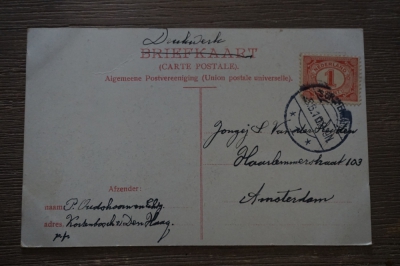 Drukwerk
BRIEFKAART
(CARTE POSTALE).
Algemeene Postvereeniging (Union postale universelle).
NEDERLAND
1
Jongej L. Van der Heyden
Haarlemmerstraat 103
Amsterdam
Afzender:
naam: P. Oudshoorn
adres: Kortenbosch Den Haag.